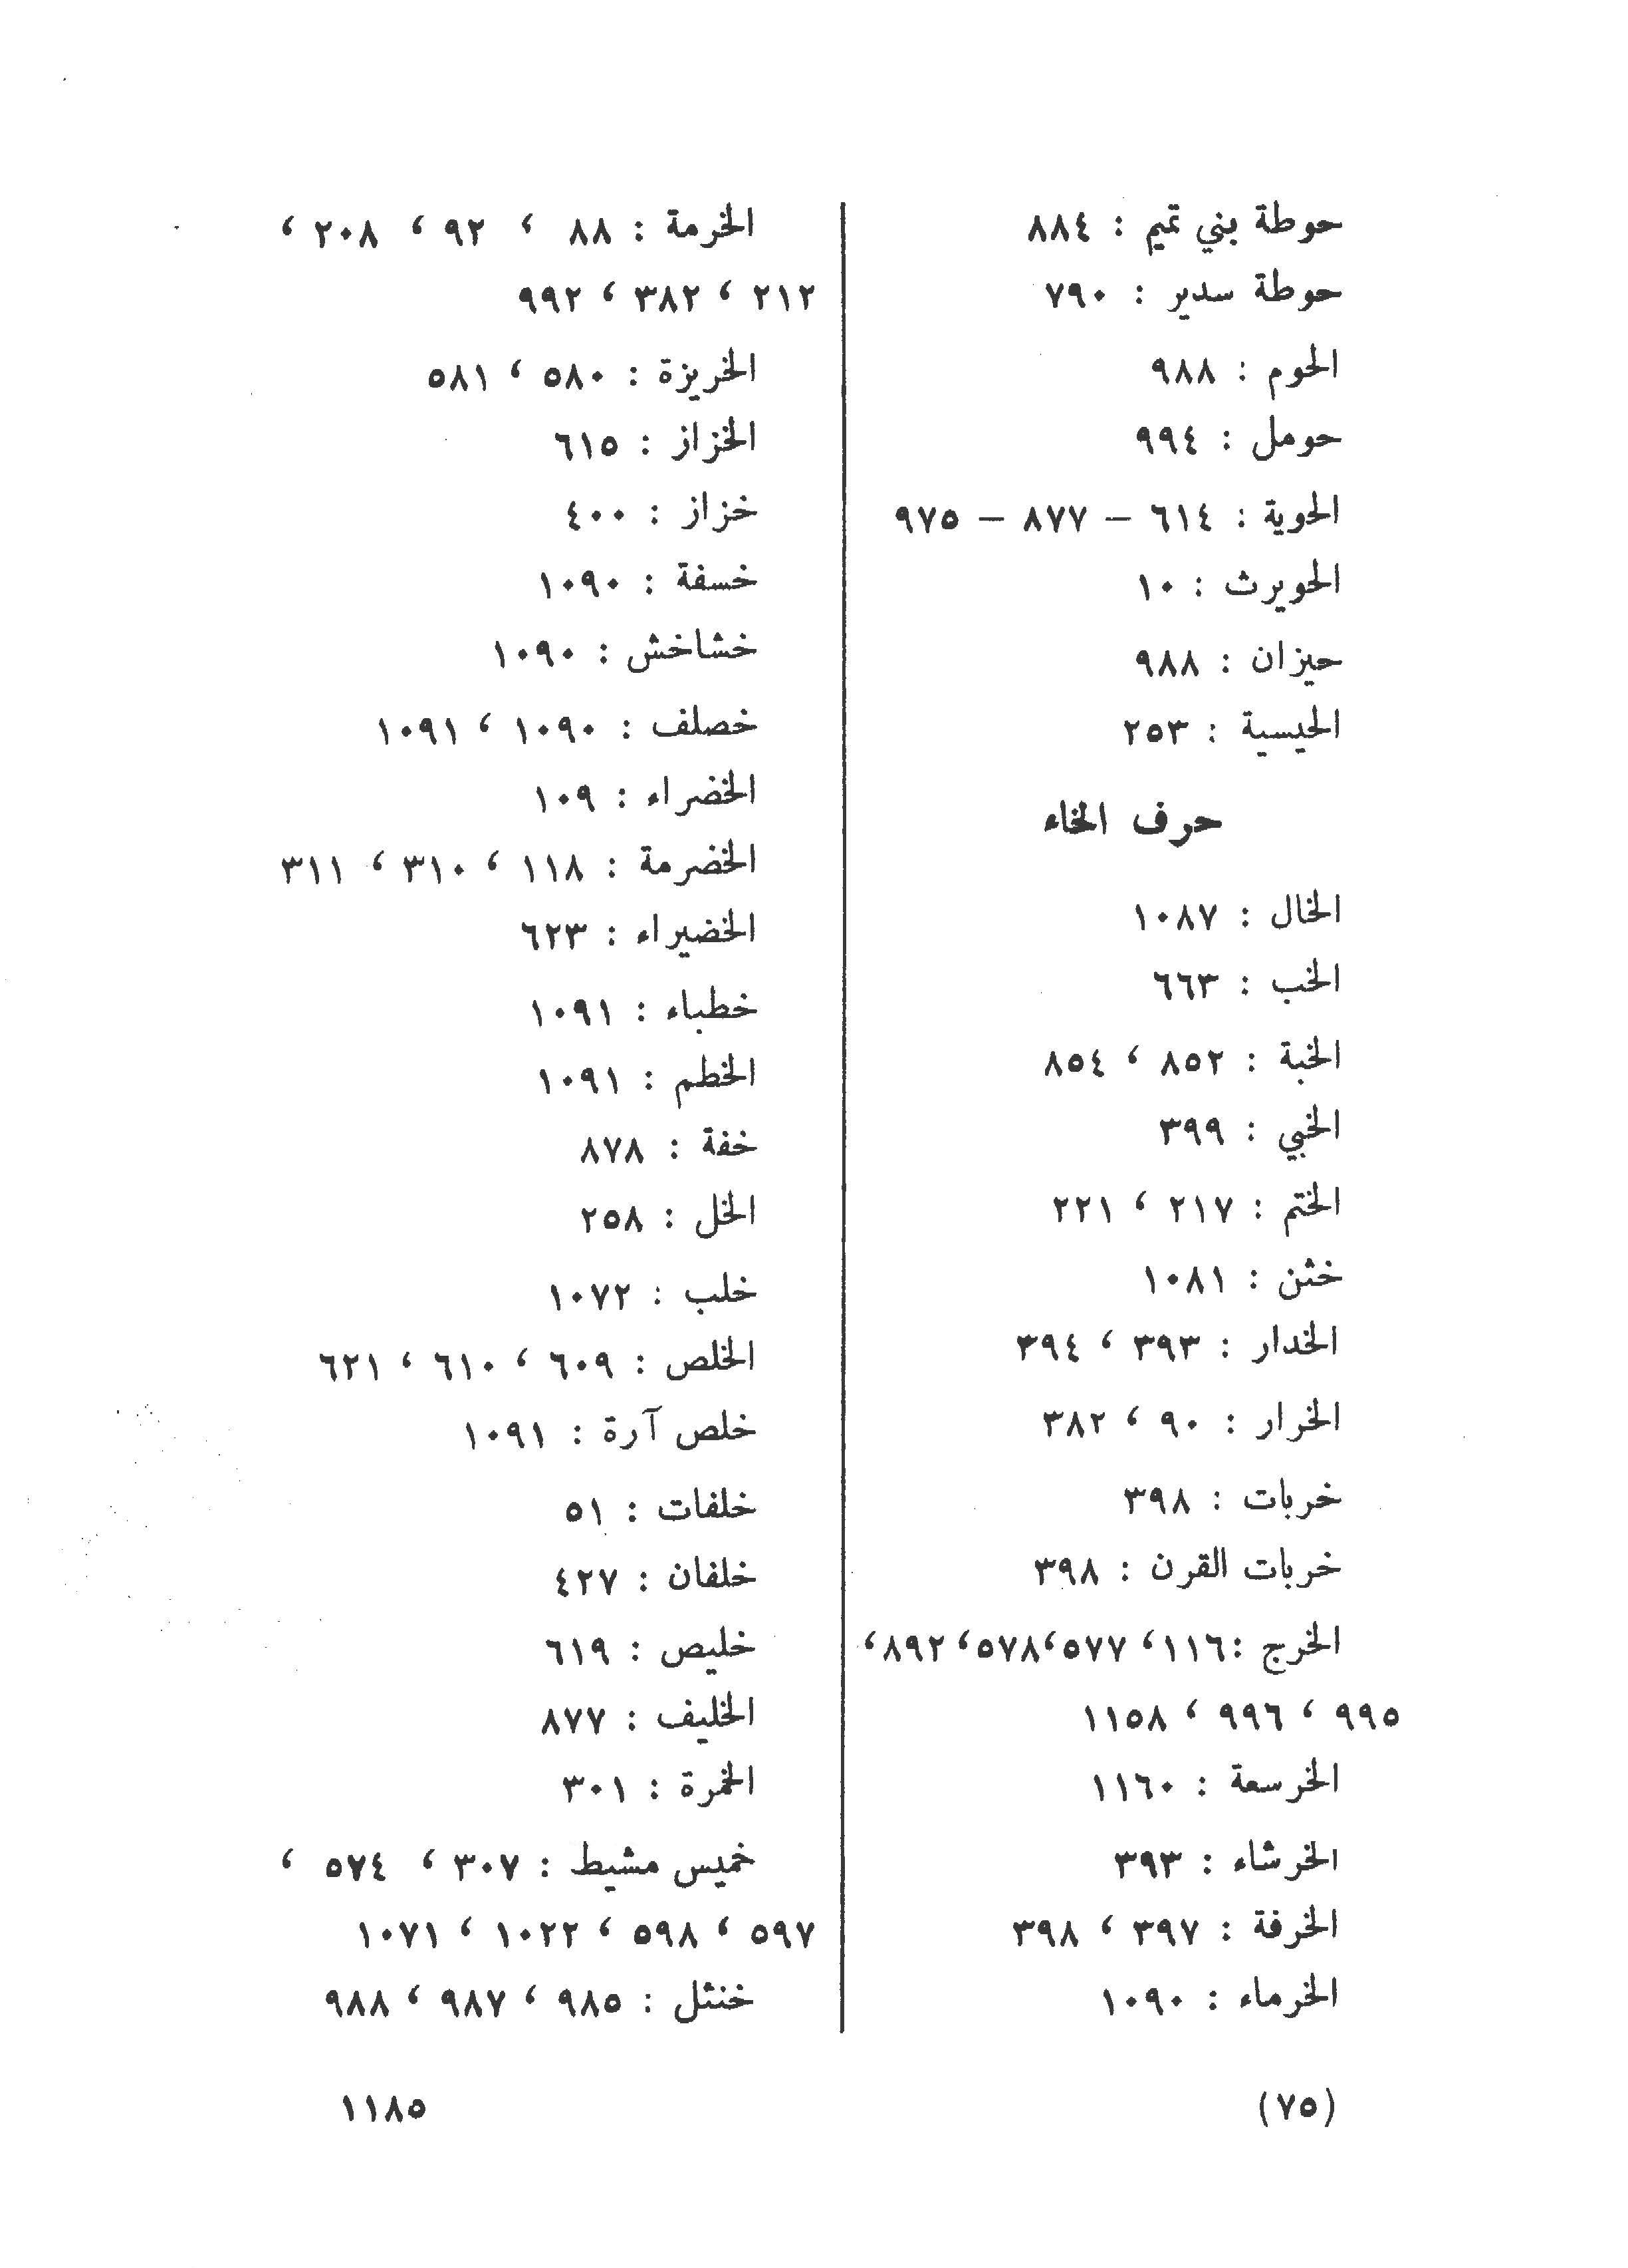 حوطة بني تميم : ٨٨٤
حوطة سدير : ٧٩٠
الحوم : ٩٨٨
حومل : ٩٩٤
الحوية : ٦١٤ – ٨٧٧ – ٩٧٥
الحويرث : ١٠
حيزان : ٩٨٨
الحيسية : ٢٥٣
حرف الخاء
الخال : ١٠٨٧
الخب : ٦٦٣
الخبة : ٨٥٢ ، ٨٥٤
الخبي : ٣٩٩
الختم : ٢١٧ ، ٢٢١
خثن : ١٠٨١
الخدار : ٣٩٣ ، ٣٩٤
الخرار : ٩٠ ، ٣٨٢
خربات : ٣٩٨
خربات القرن : ٣٩٨
الخرج :١١٦، ٥٧٧،٥٧٨،٨٩٢،
٩٩٥ ، ٩٩٦ ، ١١٥٨
الخرسعة : ١١٦٠
الخرشاء : ٣٩٣
الخرفة : ٣٩٧ ، ٣٩٨
الخرماء : ١٠٩٠
الخرمة : ٨٨ ، ٩٢ ، ٢٠٨ ،
٢١٢ ، ٣٨٢ ، ٩٩٢
الخريزة : ٥٨٠ ، ٥٨١
الخزاز : ٦١٥
خزاز : ٤٠٠
خسفة : ١٠٩٠
خشاخش : ١٠٩٠
خصلف : ١٠٩٠ ، ١٠٩١
الخضراء : ١٠٩
الخضرمة : ١١٨ ، ٣١٠ ، ٣١١
الخضيراء : ٦٢٣
خطباء : ١٠٩١
الخطم : ١٠٩١
خفة : ٨٧٨
الخل : ٢٥٨
خلب : ١٠٧٢
الخلص : ٦٠٩ ، ٦١٠ ، ٦٢١
خلص آرة : ١٠٩١
خلفات : ٥١
خلفان : ٤٢٧
خليص : ٦١٩
الخليف : ٨٧٧
الخمرة : ٣٠١
خميس مشيط : ٣٠٧ ، ٥٧٤ ،
٥٩٧ ، ٥٩٨ ، ١٠٢٢ ، ١٠٧١
خنثل : ٩٨٥ ، ٩٨٧ ، ٩٨٨
(٧٥)
١١٨٥